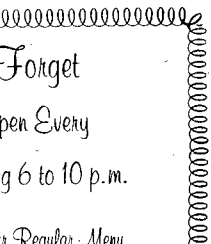 Forget
pen Every
g 6 to 10 p.m.
r Regular Menu